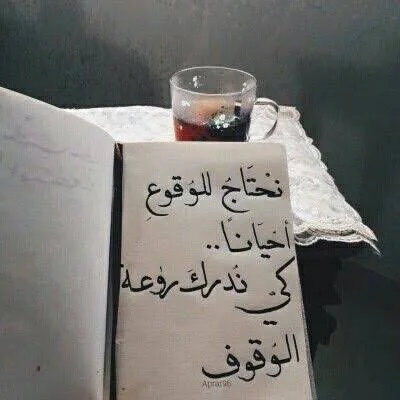 نحْتَاجُ للوُقوعِ
أحيَانًا..
كيْ نُدركَ روٰعة
الوُقوف
Aprar96